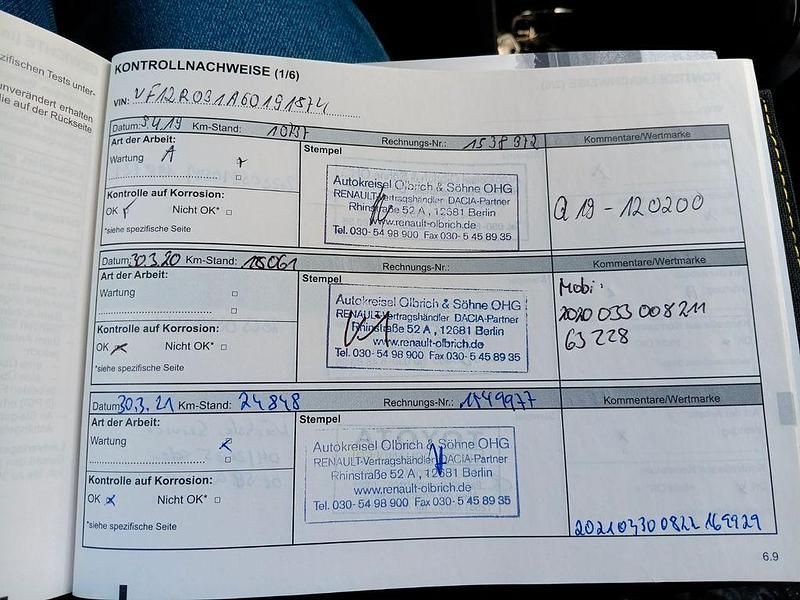 zifischen Tests unter-
unverändert erhalten
die auf der Rückseite
KONTROLLNACHWEISE (1/6)
VIN: VF12R091A60191574
Datum: 3.4.19 Km-Stand: 10737 Rechnungs-Nr.: 1538972 Kommentare/Wertmarke
Art der Arbeit:
Wartung A
Kontrolle auf Korrosion:
OK Nicht OK*
*siehe spezifische Seite
Stempel
Autokreisel Olbrich & Söhne OHG
RENAULT-Vertragshändler DACIA-Partner
Rhinstraße 52 A , 12681 Berlin
www.renault-olbrich.de
Tel. 030- 54 98 900 Fax 030- 5 45 89 35
Q 19 - 120200
Datum: 30.3.20 Km-Stand: 18061 Rechnungs-Nr.: Kommentare/Wertmarke
Art der Arbeit:
Wartung
Kontrolle auf Korrosion:
OK Nicht OK*
*siehe spezifische Seite
Stempel
Autokreisel Olbrich & Söhne OHG
RENAULT-Vertragshändler DACIA-Partner
Rhinstraße 52 A , 12681 Berlin
www.renault-olbrich.de
Tel. 030- 54 98 900 Fax 030- 5 45 89 35
Mobi:
2020 033 008211
63228
Datum: 30.3.21 Km-Stand: 24848 Rechnungs-Nr.: 1549977 Kommentare/Wertmarke
Art der Arbeit:
Wartung
Kontrolle auf Korrosion:
OK Nicht OK*
*siehe spezifische Seite
Stempel
Autokreisel Olbrich & Söhne OHG
RENAULT-Vertragshändler DACIA-Partner
Rhinstraße 52 A , 12681 Berlin
www.renault-olbrich.de
Tel. 030- 54 98 900 Fax 030- 5 45 89 35
202103300822169929
6.9